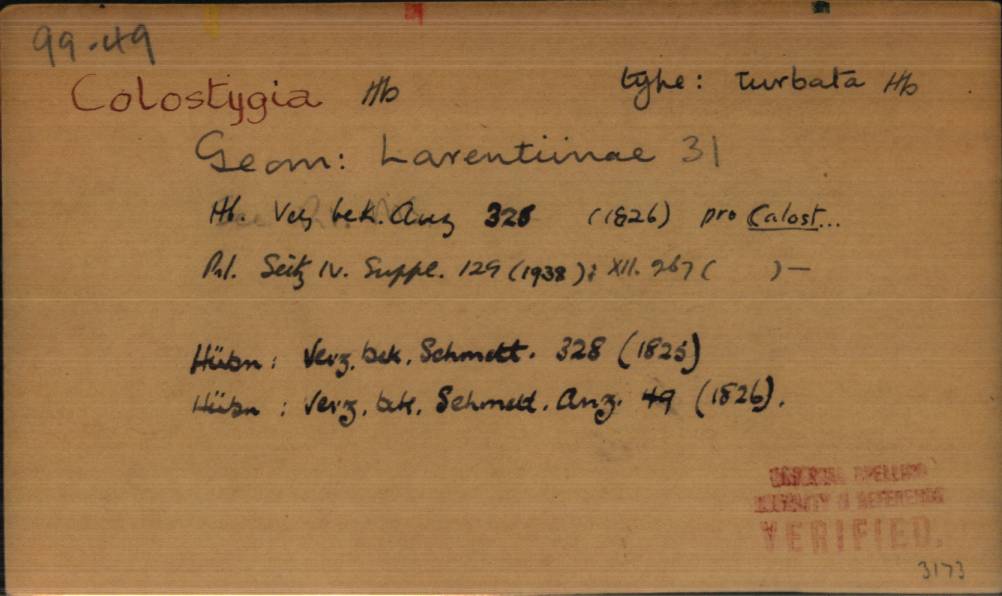 99.49
Colostygia Hb type: turbata Hb
Geom: Larentiinae 31
Hb. Verz bek. Anz 328 (1826) pro Calost...
Prt. Seitz IV. Suppl. 129 (1938); XII. 267 ( ) —
Hübn: Verz. bek. Schmett. 328 (1825)
Hübn: Verz. bek. Schmett. Anz. 49 (1826).
ORIGINAL SPELLING
IDENTITY & REFERENCE
VERIFIED.
3173